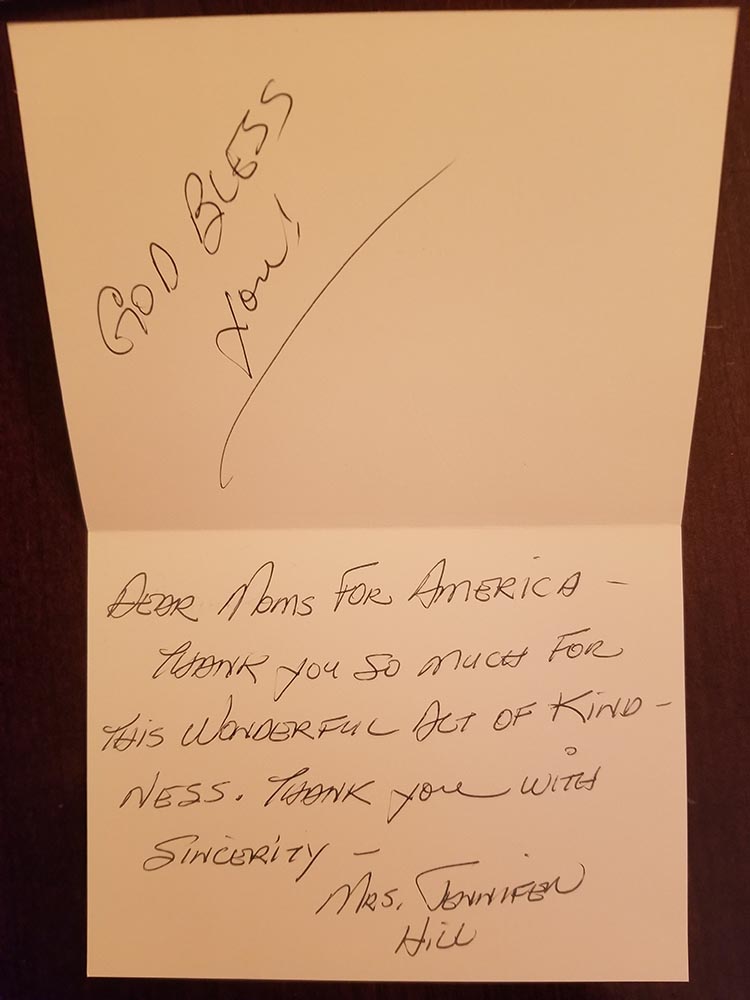 GOD BLESS
You!
DEAR MOMS FOR AMERICA –
THANK you SO MUCH FOR
THIS WONDERFUL ACT OF KIND-
NESS. THANK you WITH
SINCERITY –
MRS. JENNIFER
HILL